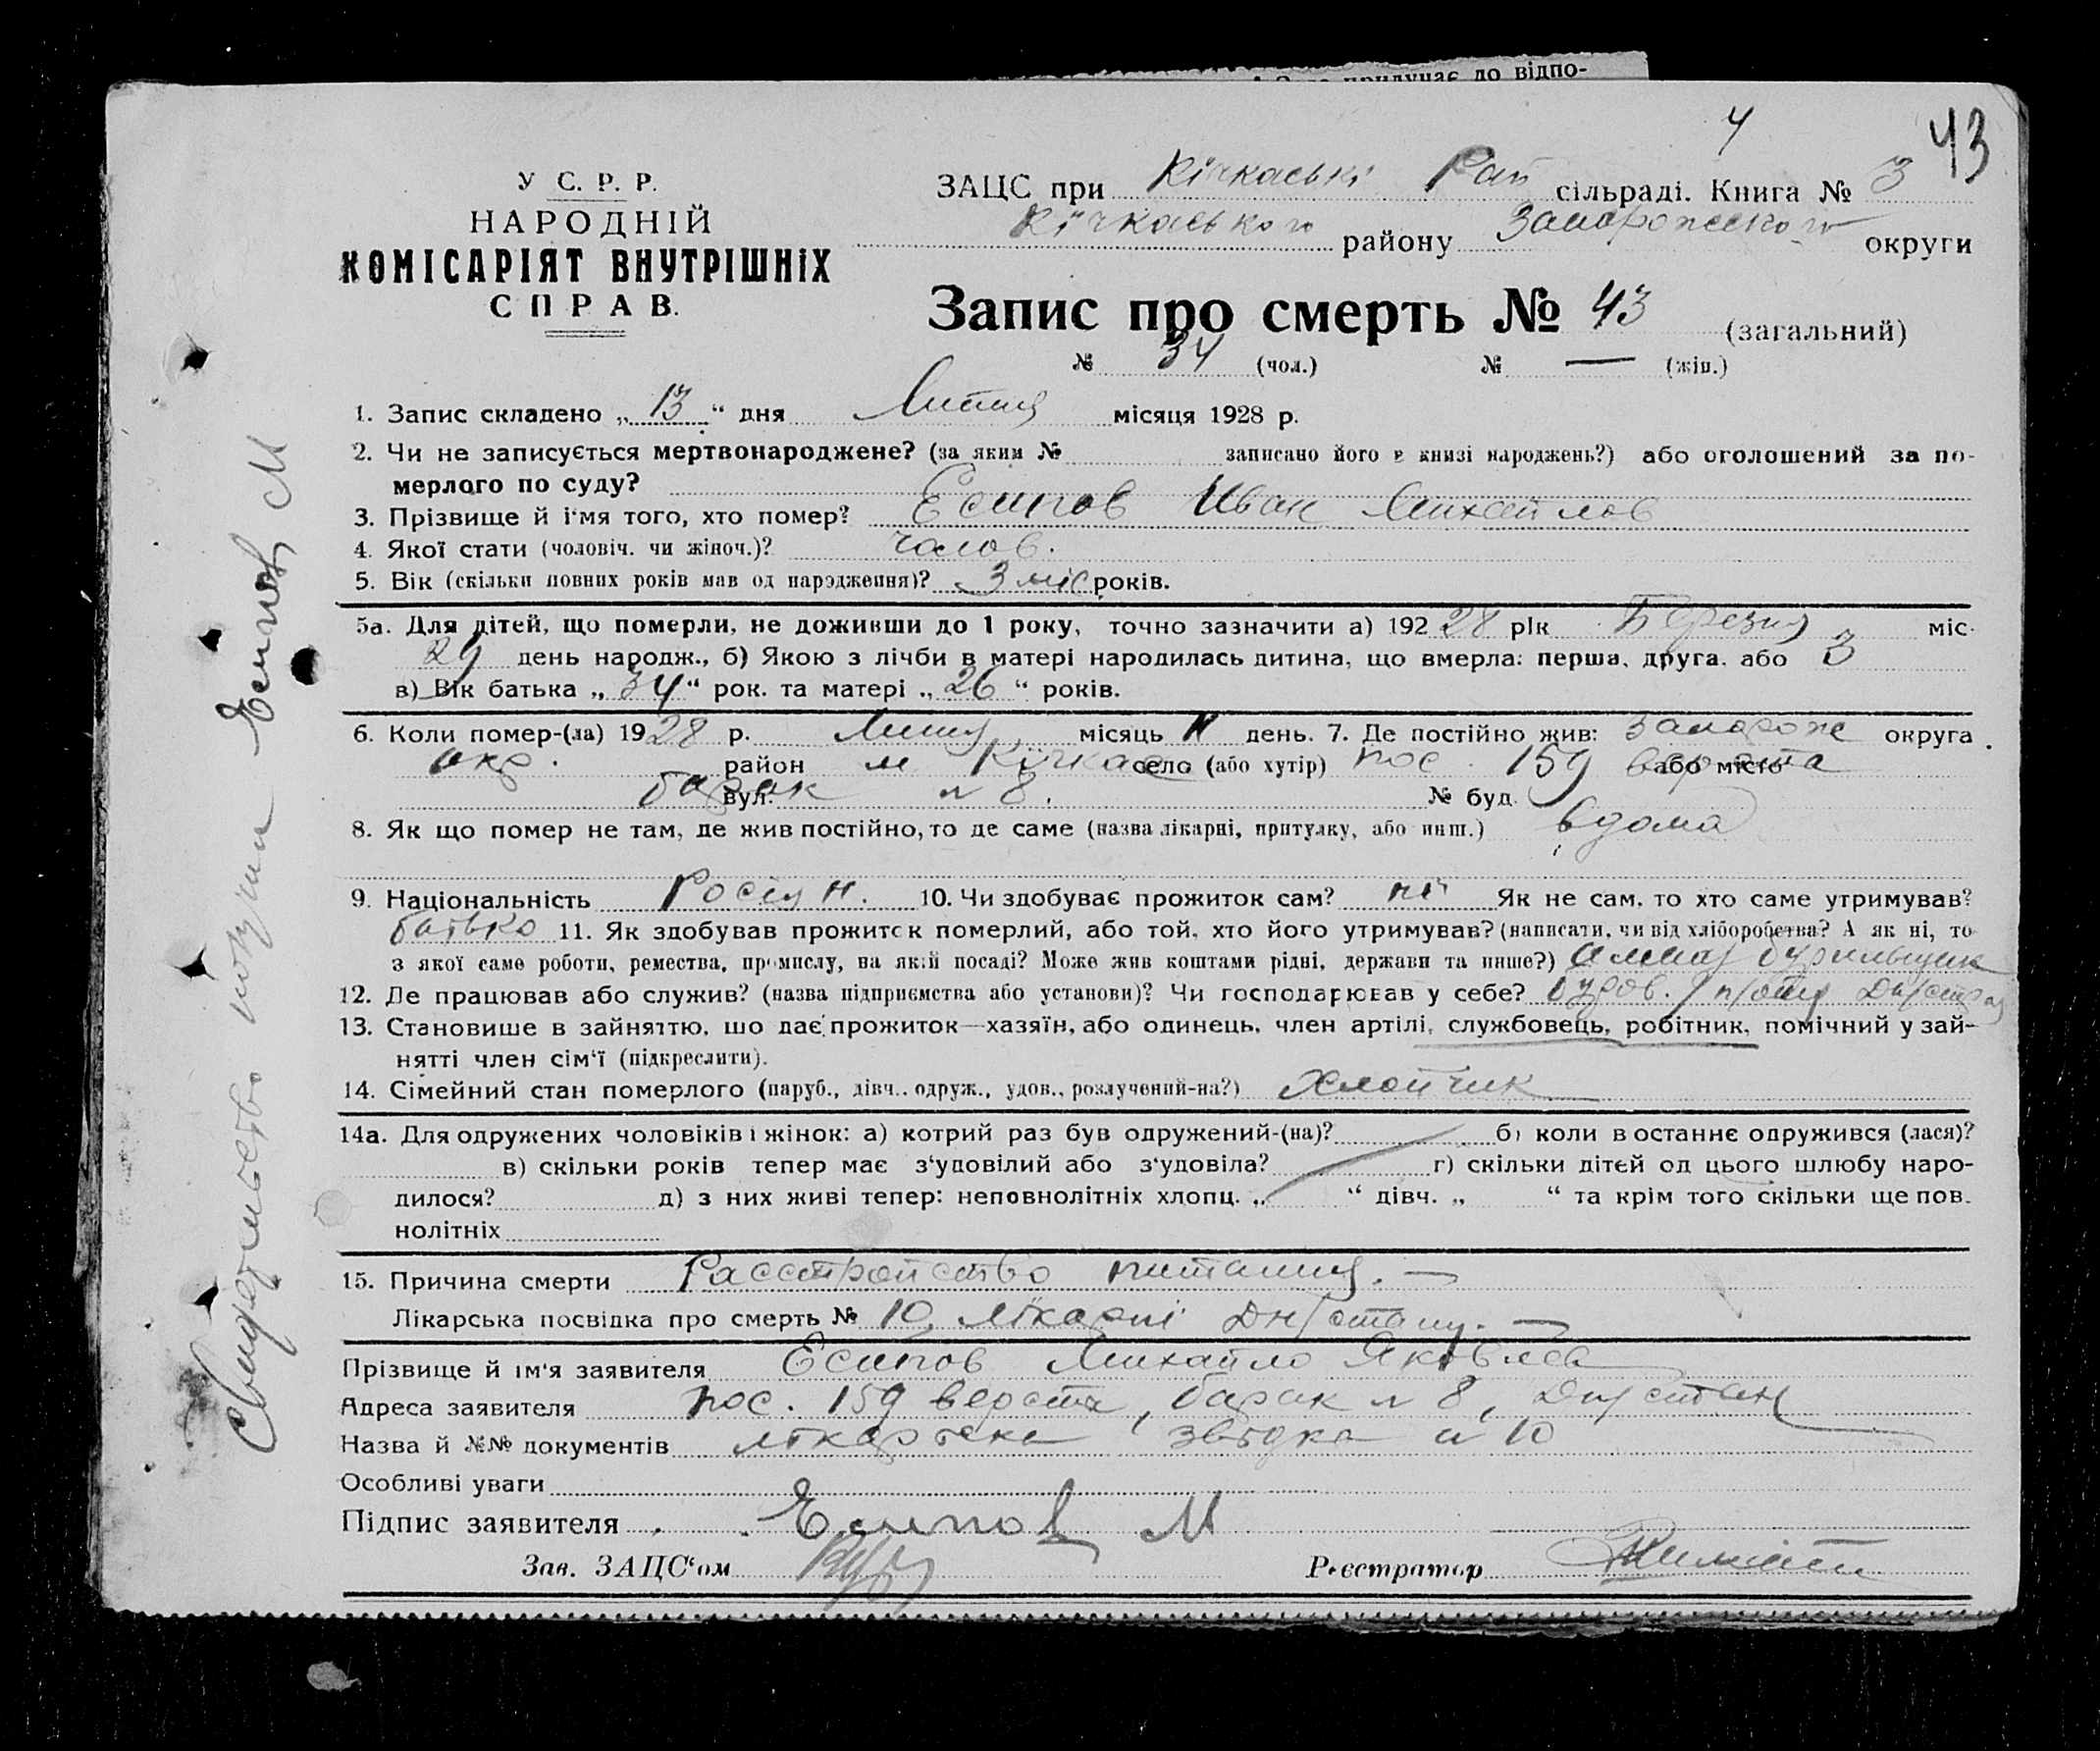 придучає до відпо-
4
43
У С. Р. Р.
НАРОДНІЙ
КОМІСАРІЯТ ВНУТРІШНІХ
СПРАВ.
ЗАЦС при Кічкаські Рай сільраді. Книга № 3
Кічкаського району Запорожского округи
Запис про смерть № 43 (загальний)
№ 34 (чол.) № — (жін.)
1. Запис складено „13“ дня Липня місяця 1928 р.
2. Чи не записується мертвонароджене? (за яким № записано його в книзі народжень?) або оголошений за по-
мерлого по суду?
3. Прізвище й ім'я того, хто помер? Есипов Иван Михайлов
4. Якої стати (чоловіч. чи жіноч.)? чолов.
5. Вік (скільки повних років мав од народження)? 3 міс років.
5а. Для дітей, що померли, не доживши до 1 року, точно зазначити а) 192 28 рік Березня міс.
29 день народж., б) Якою з лічби в матері народилась дитина, що вмерла: перша, друга. або 3
в) Вік батька „34“ рок. та матері „26“ років.
6. Коли помер-(ла) 1928 р. Липня місяць 11 день. 7. Де постійно жив: Запорож округа
окр. район м Кічкас село (або хутір) пос. 159 верста або місто
барак вул. № 8. № буд.
8. Як що помер не там, де жив постійно, то де саме (назва лікарні, притулку, або инш.) вдома
9. Національність Росіян. 10. Чи здобуває прожиток сам? ні Як не сам, то хто саме утримував?
батько 11. Як здобував прожиток померлий, або той, хто його утримував? (написати, чи від хліборобства? А як ні, то
з якої саме роботи, ремества, промислу, на якій посаді? Може жив коштами рідні, держави та инше?) бурильщик
12. Де працював або служив? (назва підприємства або установи)? Чи господарював у себе?
13. Становище в зайняттю, що дає прожиток—хазяїн, або одинець, член артілі, службовець, робітник, помічний у зай-
нятті член сім'ї (підкреслити).
14. Сімейний стан померлого (паруб., дівч., одруж., удов., розлучений-на?) Хлопчик
14а. Для одружених чоловіків і жінок: а) котрий раз був одружений-(на)? б) коли востаннє одружився (лася)?
в) скільки років тепер має з'удовілий або з'удовіла? г) скільки дітей од цього шлюбу наро-
дилося? д) з них живі тепер: неповнолітніх хлопц. „ “ дівч. „ “ та крім того скільки ще пов.
нолітніх
15. Причина смерти Расстройство питания. —
Лікарська посвідка про смерть № 10 лікарні —
Прізвище й ім'я заявителя Есипов Михайло Яковлев
Адреса заявителя пос. 159 верста, барак № 8,
Назва й №№ документів лікарська звідка № 10
Особливі уваги
Підпис заявителя Есипов М
Зав. ЗАЦС'ом Реєстратор
Свидетельство получил Есипов М